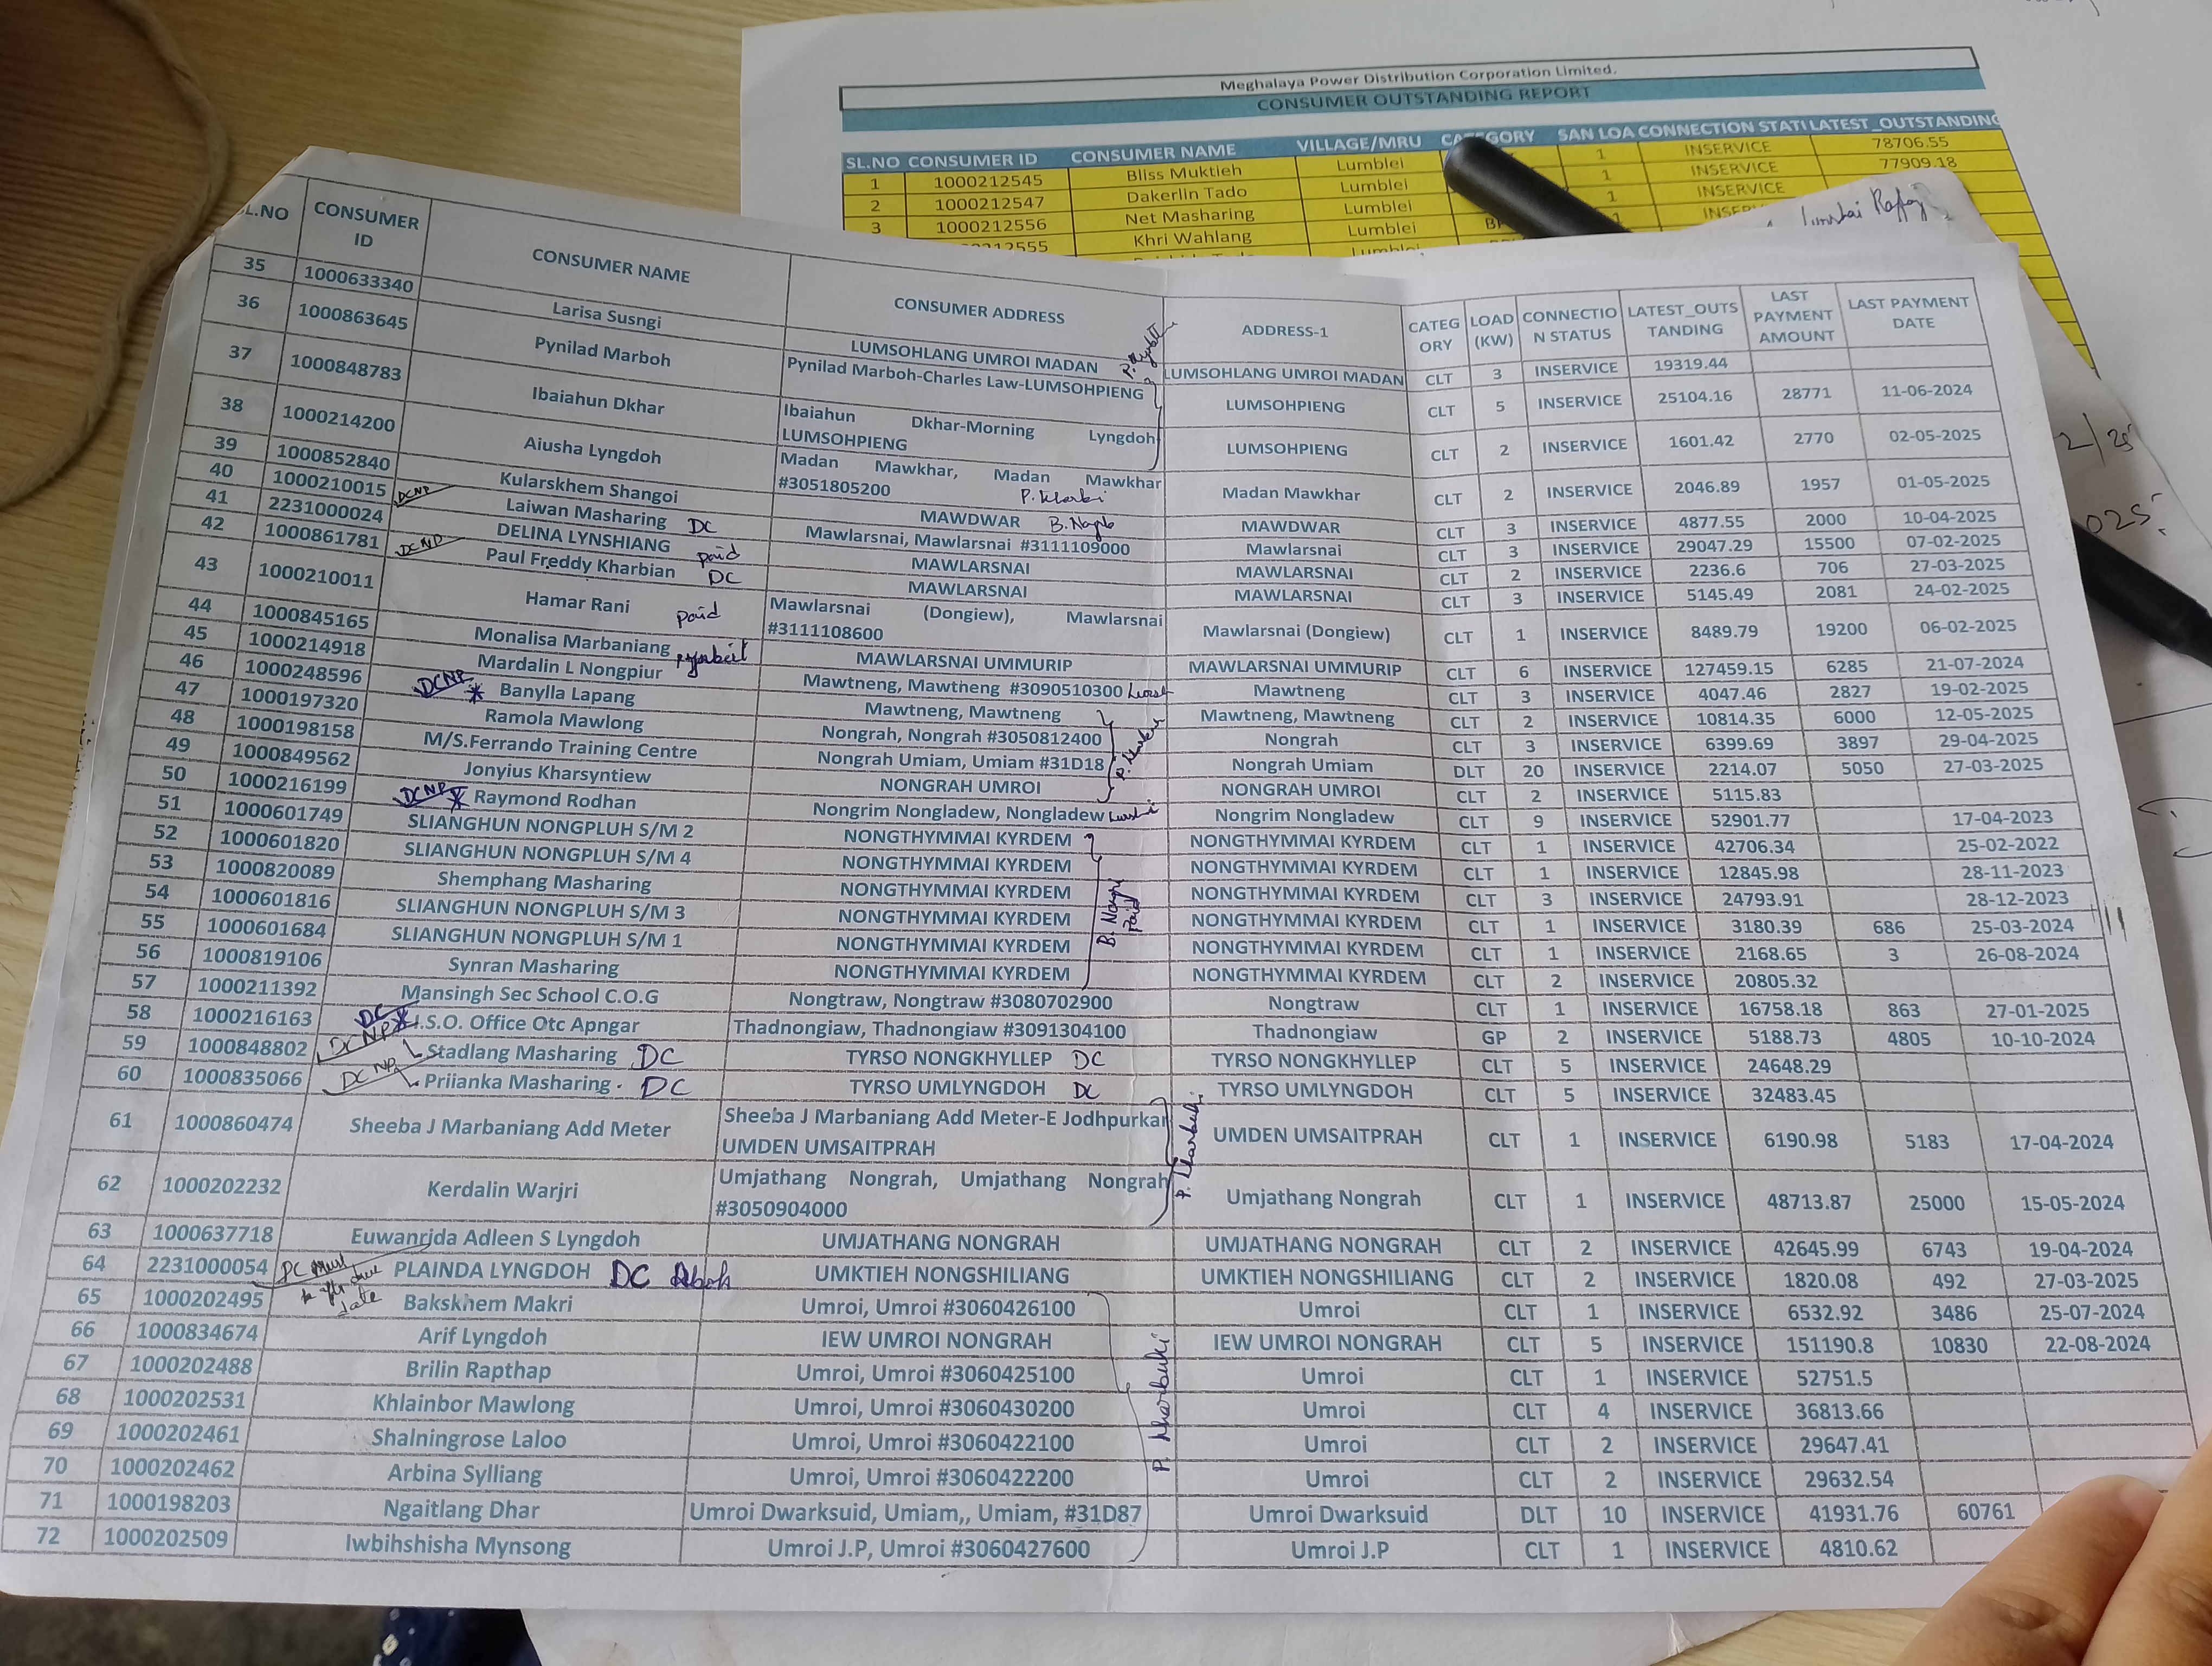 Meghalaya Power Distribution Corporation Limited.
CONSUMER OUTSTANDING REPORT
SL.NO CONSUMER ID CONSUMER NAME VILLAGE/MRU CATEGORY SAN LOA CONNECTION STATI LATEST_OUTSTANDING
1 1000212545 Bliss Muktieh Lumblei 1 INSERVICE 78706.55
2 1000212547 Dakerlin Tado Lumblei 1 INSERVICE 77909.18
3 1000212556 Net Masharing Lumblei 1 INSERVICE
Khri Wahlang Lumblei
SL.NO CONSUMER ID CONSUMER NAME CONSUMER ADDRESS ADDRESS-1 CATEGORY LOAD (KW) CONNECTION STATUS LATEST_OUTSTANDING LAST PAYMENT AMOUNT LAST PAYMENT DATE
35 1000633340 Larisa Susngi LUMSOHLANG UMROI MADAN LUMSOHLANG UMROI MADAN CLT 3 INSERVICE 19319.44
36 1000863645 Pynilad Marboh Pynilad Marboh-Charles Law-LUMSOHPIENG LUMSOHPIENG CLT 5 INSERVICE 25104.16 28771 11-06-2024
37 1000848783 Ibaiahun Dkhar Ibaiahun Dkhar-Morning Lyngdoh LUMSOHPIENG LUMSOHPIENG CLT 2 INSERVICE 1601.42 2770 02-05-2025
38 1000214200 Aiusha Lyngdoh Madan Mawkhar, Madan Mawkhar #3051805200 Madan Mawkhar CLT 2 INSERVICE 2046.89 1957 01-05-2025
39 1000852840 Kularskhem Shangoi MAWDWAR MAWDWAR CLT 3 INSERVICE 4877.55 2000 10-04-2025
40 1000210015 DCNP Laiwan Masharing DC Mawlarsnai, Mawlarsnai #3111109000 Mawlarsnai CLT 3 INSERVICE 29047.29 15500 07-02-2025
41 2231000024 DELINA LYNSHIANG paid MAWLARSNAI MAWLARSNAI CLT 2 INSERVICE 2236.6 706 27-03-2025
42 1000861781 DCNP Paul Freddy Kharbian DC MAWLARSNAI MAWLARSNAI CLT 3 INSERVICE 5145.49 2081 24-02-2025
43 1000210011 Hamar Rani paid Mawlarsnai (Dongiew), Mawlarsnai #3111108600 Mawlarsnai (Dongiew) CLT 1 INSERVICE 8489.79 19200 06-02-2025
44 1000845165 Monalisa Marbaniang MAWLARSNAI UMMURIP MAWLARSNAI UMMURIP CLT 6 INSERVICE 127459.15 6285 21-07-2024
45 1000214918 Mardalin L Nongpiur Mawtneng, Mawtheng #3090510300 Mawtneng CLT 3 INSERVICE 4047.46 2827 19-02-2025
46 1000248596 DCNP * Banylla Lapang Mawtneng, Mawtneng Mawtneng, Mawtneng CLT 2 INSERVICE 10814.35 6000 12-05-2025
47 1000197320 Ramola Mawlong Nongrah, Nongrah #3050812400 Nongrah CLT 3 INSERVICE 6399.69 3897 29-04-2025
48 1000198158 M/S.Ferrando Training Centre Nongrah Umiam, Umiam #31D18 Nongrah Umiam DLT 20 INSERVICE 2214.07 5050 27-03-2025
49 1000849562 Jonyius Kharsyntiew NONGRAH UMROI NONGRAH UMROI CLT 2 INSERVICE 5115.83
50 1000216199 DCNP * Raymond Rodhan Nongrim Nongladew, Nongladew Nongrim Nongladew CLT 9 INSERVICE 52901.77 17-04-2023
51 1000601749 SLIANGHUN NONGPLUH S/M 2 NONGTHYMMAI KYRDEM NONGTHYMMAI KYRDEM CLT 1 INSERVICE 42706.34 25-02-2022
52 1000601820 SLIANGHUN NONGPLUH S/M 4 NONGTHYMMAI KYRDEM NONGTHYMMAI KYRDEM CLT 1 INSERVICE 12845.98 28-11-2023
53 1000820089 Shemphang Masharing NONGTHYMMAI KYRDEM NONGTHYMMAI KYRDEM CLT 3 INSERVICE 24793.91 28-12-2023
54 1000601816 SLIANGHUN NONGPLUH S/M 3 NONGTHYMMAI KYRDEM NONGTHYMMAI KYRDEM CLT 1 INSERVICE 3180.39 686 25-03-2024
55 1000601684 SLIANGHUN NONGPLUH S/M 1 NONGTHYMMAI KYRDEM NONGTHYMMAI KYRDEM CLT 1 INSERVICE 2168.65 3 26-08-2024
56 1000819106 Synran Masharing NONGTHYMMAI KYRDEM NONGTHYMMAI KYRDEM CLT 2 INSERVICE 20805.32
57 1000211392 Mansingh Sec School C.O.G Nongtraw, Nongtraw #3080702900 Nongtraw CLT 1 INSERVICE 16758.18 863 27-01-2025
58 1000216163 DC I.S.O. Office Otc Apngar Thadnongiaw, Thadnongiaw #3091304100 Thadnongiaw GP 2 INSERVICE 5188.73 4805 10-10-2024
59 1000848802 DCNP Stadlang Masharing DC TYRSO NONGKHYLLEP DC TYRSO NONGKHYLLEP CLT 5 INSERVICE 24648.29
60 1000835066 DCNP Priianka Masharing DC TYRSO UMLYNGDOH DC TYRSO UMLYNGDOH CLT 5 INSERVICE 32483.45
61 1000860474 Sheeba J Marbaniang Add Meter Sheeba J Marbaniang Add Meter-E Jodhpurkar UMDEN UMSAITPRAH UMDEN UMSAITPRAH CLT 1 INSERVICE 6190.98 5183 17-04-2024
62 1000202232 Kerdalin Warjri Umjathang Nongrah, Umjathang Nongrah #3050904000 Umjathang Nongrah CLT 1 INSERVICE 48713.87 25000 15-05-2024
63 1000637718 Euwanrida Adleen S Lyngdoh UMJATHANG NONGRAH UMJATHANG NONGRAH CLT 2 INSERVICE 42645.99 6743 19-04-2024
64 2231000054 PLAINDA LYNGDOH DC UMKTIEH NONGSHILIANG UMKTIEH NONGSHILIANG CLT 2 INSERVICE 1820.08 492 27-03-2025
65 1000202495 Bakskhem Makri Umroi, Umroi #3060426100 Umroi CLT 1 INSERVICE 6532.92 3486 25-07-2024
66 1000834674 Arif Lyngdoh IEW UMROI NONGRAH IEW UMROI NONGRAH CLT 5 INSERVICE 151190.8 10830 22-08-2024
67 1000202488 Brilin Rapthap Umroi, Umroi #3060425100 Umroi CLT 1 INSERVICE 52751.5
68 1000202531 Khlainbor Mawlong Umroi, Umroi #3060430200 Umroi CLT 4 INSERVICE 36813.66
69 1000202461 Shalningrose Laloo Umroi, Umroi #3060422100 Umroi CLT 2 INSERVICE 29647.41
70 1000202462 Arbina Sylliang Umroi, Umroi #3060422200 Umroi CLT 2 INSERVICE 29632.54
71 1000198203 Ngaitlang Dhar Umroi Dwarksuid, Umiam,, Umiam, #31D87 Umroi Dwarksuid DLT 10 INSERVICE 41931.76 60761
72 1000202509 Iwbihshisha Mynsong Umroi J.P, Umroi #3060427600 Umroi J.P CLT 1 INSERVICE 4810.62